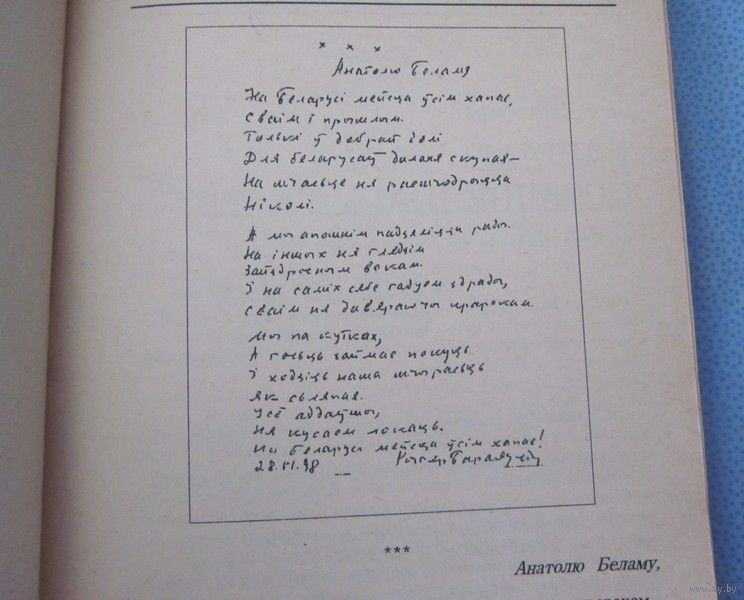 × × ×
Анатолю Беламу
На Беларусі месца ўсім хапае,
Сваім і прошлым.
Толькі ў добрай долі
Для беларусаў далоня скупая—
На шчасце ня расшчодрыцца
Ніколі.
А мы апошнім падзяліцца рады.
На іншых ня глядзім
Зайздросным вокам.
І на саміх сябе гадуем здраду,
Сваім ня давяраючы прарокам.
Мы па кутках,
А госьць займае покуць.
І ходзіць наша шчырасьць
Як сьляпая.
Усё аддаўшы,
Ня кусаем локаць.
На Беларусі месца ўсім хапае!
28.VI.98 Рыгор Барадулін
***
Анатолю Беламу,
www.ay.by